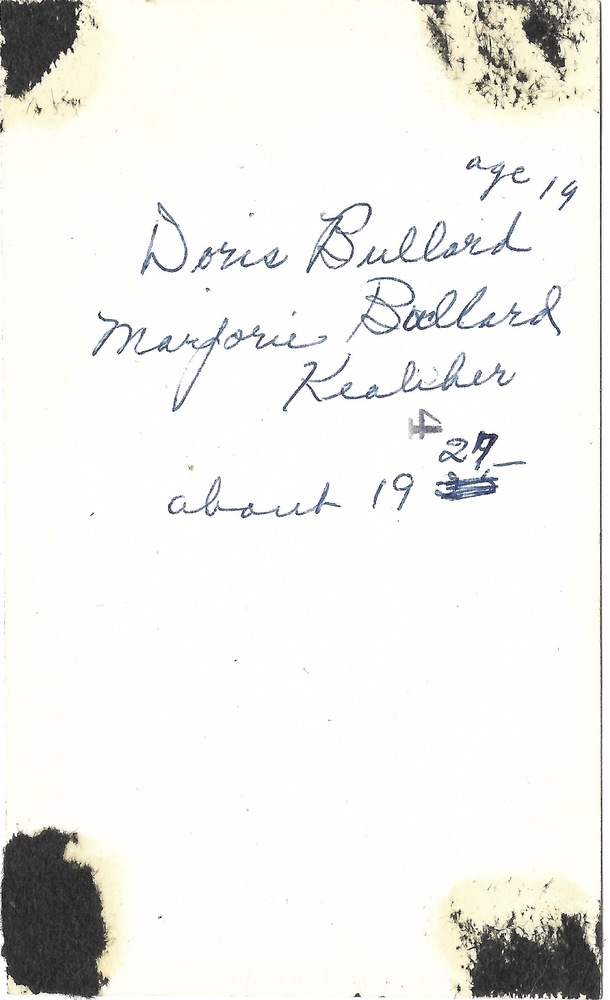 age 19
Doris Bullard
Marjorie Bullard
Kealiher
4
27
about 19